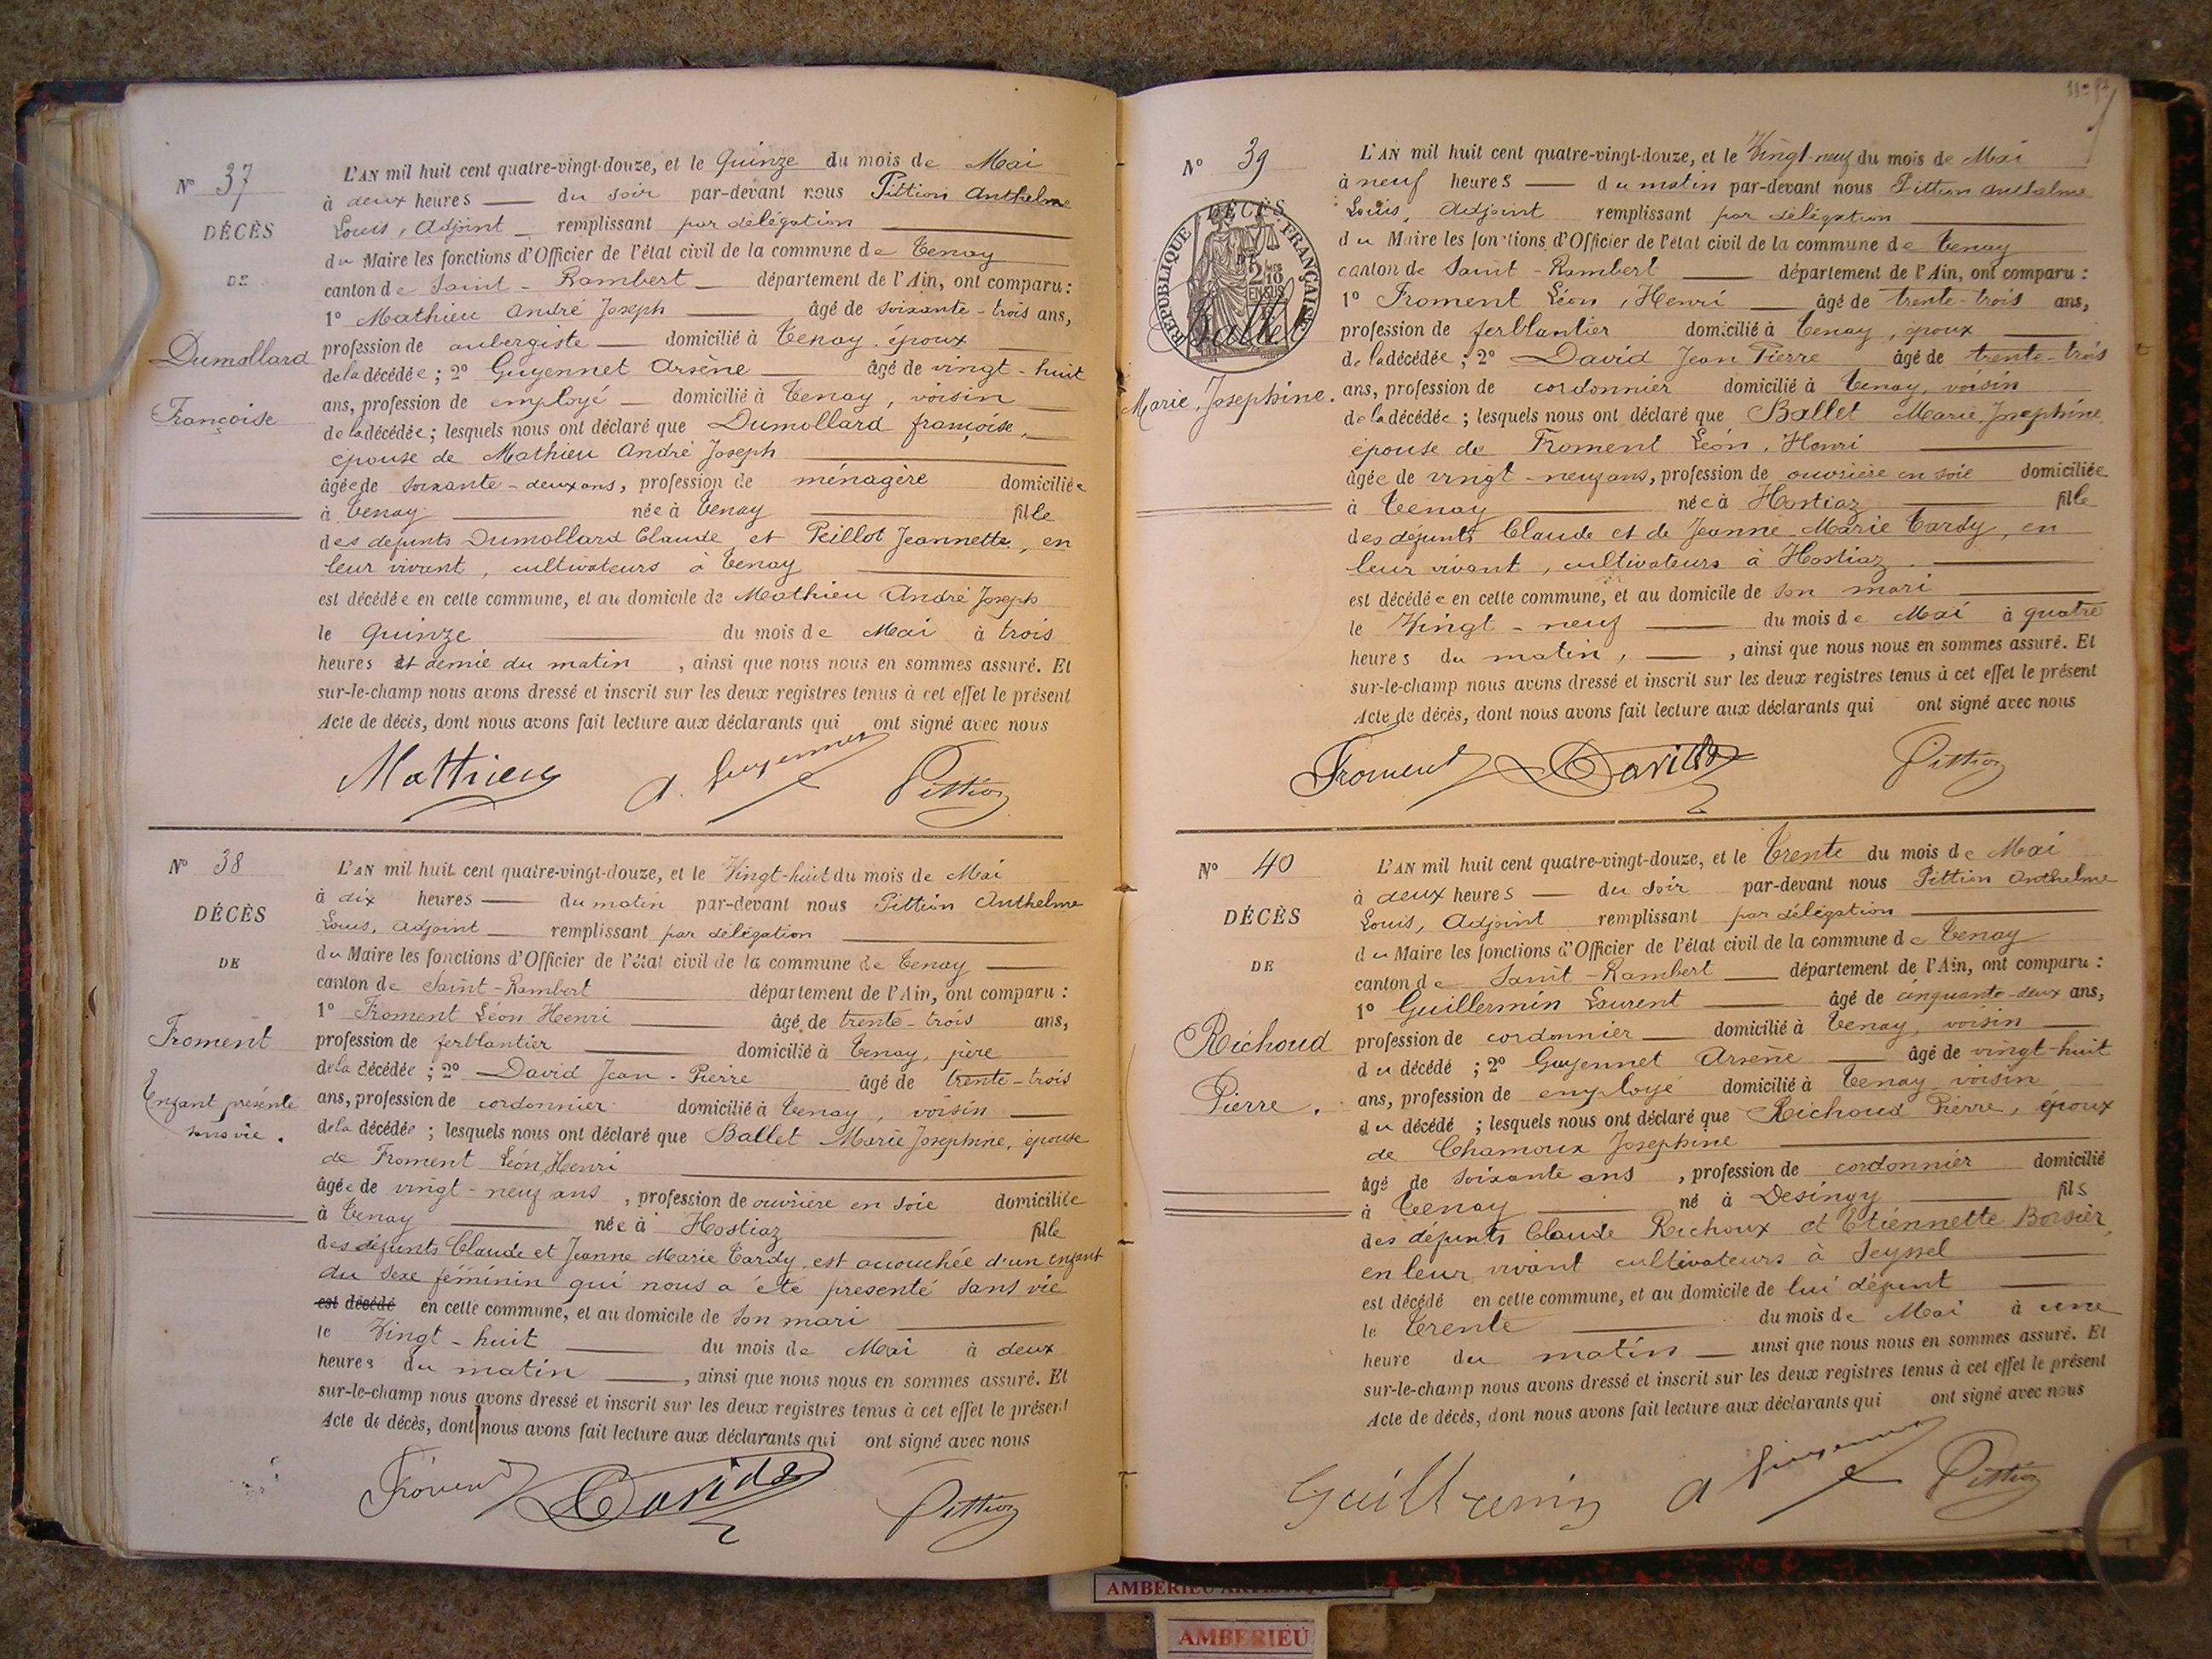 N° 37
DÉCÈS
DE
Dumollard
Françoise
L'AN mil huit cent quatre-vingt-douze, et le Quinze du mois de Mai
à deux heures — du soir par-devant nous Pittion Anthelme
Louis, Adjoint — remplissant par délégation
du Maire les fonctions d'Officier de l'état civil de la commune de Tenay
canton de Saint-Rambert — département de l'Ain, ont comparu :
1° Mathieu André Joseph — âgé de soixante-trois ans,
profession de aubergiste — domicilié à Tenay, époux
de la décédée ; 2° Guyennet Arsène — âgé de vingt-huit
ans, profession de employé — domicilié à Tenay, voisin
de la décédée ; lesquels nous ont déclaré que Dumollard françoise,
épouse de Mathieu André Joseph
âgée de soixante-deux ans, profession de ménagère domiciliée
à Tenay — née à Tenay — fille
des défunts Dumollard Claude et Peillot Jeannette, en
leur vivant, cultivateurs à Tenay
est décédée en cette commune, et au domicile de Mathieu André Joseph
le Quinze — du mois de Mai à trois
heures et demie du matin, ainsi que nous nous en sommes assuré. Et
sur-le-champ nous avons dressé et inscrit sur les deux registres tenus à cet effet le présent
Acte de décès, dont nous avons fait lecture aux déclarants qui ont signé avec nous
Mathieu A. Guyennet Pittion
N° 38
DÉCÈS
DE
Froment
Enfant présenté
sans vie.
L'AN mil huit cent quatre-vingt-douze, et le Vingt-huit du mois de Mai
à dix heures — du matin par-devant nous Pittion Anthelme
Louis, Adjoint — remplissant par délégation
du Maire les fonctions d'Officier de l'état civil de la commune de Tenay
canton de Saint-Rambert département de l'Ain, ont comparu :
1° Froment Léon Henri — âgé de trente-trois ans,
profession de ferblantier — domicilié à Tenay, père
de la décédée ; 2° David Jean-Pierre âgé de trente-trois
ans, profession de cordonnier domicilié à Tenay, voisin
de la décédée ; lesquels nous ont déclaré que Ballet Marie Josephine, épouse
de Froment Léon Henri
âgée de vingt-neuf ans, profession de ouvrière en soie domiciliée
à Tenay — née à Hostiaz — fille
des défunts Claude et Jeanne Marie Tardy, est accouchée d'un enfant
du sexe féminin qui nous a été présenté sans vie
est décédé en cette commune, et au domicile de son mari
le Vingt-huit — du mois de Mai à deux
heures du matin —, ainsi que nous nous en sommes assuré. Et
sur-le-champ nous avons dressé et inscrit sur les deux registres tenus à cet effet le présent
Acte de décès, dont nous avons fait lecture aux déclarants qui ont signé avec nous
Froment David Pittion
N° 39
DÉCÈS
DE
RÉPUBLIQUE FRANÇAISE
2/10
EN SUS
Ballet
Marie, Josephine.
L'AN mil huit cent quatre-vingt-douze, et le Vingt-neuf du mois de Mai
à neuf heures — du matin par-devant nous Pittion Anthelme
Louis, Adjoint remplissant par délégation
du Maire les fonctions d'Officier de l'état civil de la commune de Tenay
canton de Saint-Rambert — département de l'Ain, ont comparu :
1° Froment Léon, Henri — âgé de trente-trois ans,
profession de ferblantier domicilié à Tenay, époux
de la décédée ; 2° David Jean Pierre âgé de trente-trois
ans, profession de cordonnier domicilié à Tenay, voisin
de la décédée ; lesquels nous ont déclaré que Ballet Marie Josephine,
épouse de Froment Léon, Henri
âgée de vingt-neuf ans, profession de ouvrière en soie domiciliée
à Tenay — née à Hostiaz — fille
des défunts Claude et de Jeanne-Marie Tardy, en
leur vivant, cultivateurs à Hostiaz.
est décédée en cette commune, et au domicile de son mari
le Vingt-neuf — du mois de Mai à quatre
heures du matin, —, ainsi que nous nous en sommes assuré. Et
sur-le-champ nous avons dressé et inscrit sur les deux registres tenus à cet effet le présent
Acte de décès, dont nous avons fait lecture aux déclarants qui ont signé avec nous
Froment David Pittion
N° 40
DÉCÈS
DE
Richoud
Pierre.
L'AN mil huit cent quatre-vingt-douze, et le Trente du mois de Mai
à deux heures — du soir par-devant nous Pittion Anthelme
Louis, Adjoint remplissant par délégation
du Maire les fonctions d'Officier de l'état civil de la commune de Tenay
canton de Saint-Rambert — département de l'Ain, ont comparu :
1° Guillermin Laurent — âgé de cinquante-deux ans,
profession de cordonnier — domicilié à Tenay, voisin
du décédé ; 2° Guyennet Arsène — âgé de vingt-huit
ans, profession de employé domicilié à Tenay voisin
du décédé ; lesquels nous ont déclaré que Richoud Pierre, époux
de Chamoux Josephine
âgé de soixante ans, profession de cordonnier domicilié
à Tenay — né à Desingy — fils
des défunts Claude Richoux et Etiennette
en leur vivant cultivateurs à Seyssel
est décédé en cette commune, et au domicile de lui défunt
le Trente — du mois de Mai à une
heure du matin — ainsi que nous nous en sommes assuré. Et
sur-le-champ nous avons dressé et inscrit sur les deux registres tenus à cet effet le présent
Acte de décès, dont nous avons fait lecture aux déclarants qui ont signé avec nous
Guillermin A Guyennet Pittion
AMBERIEU
AMBERIEU